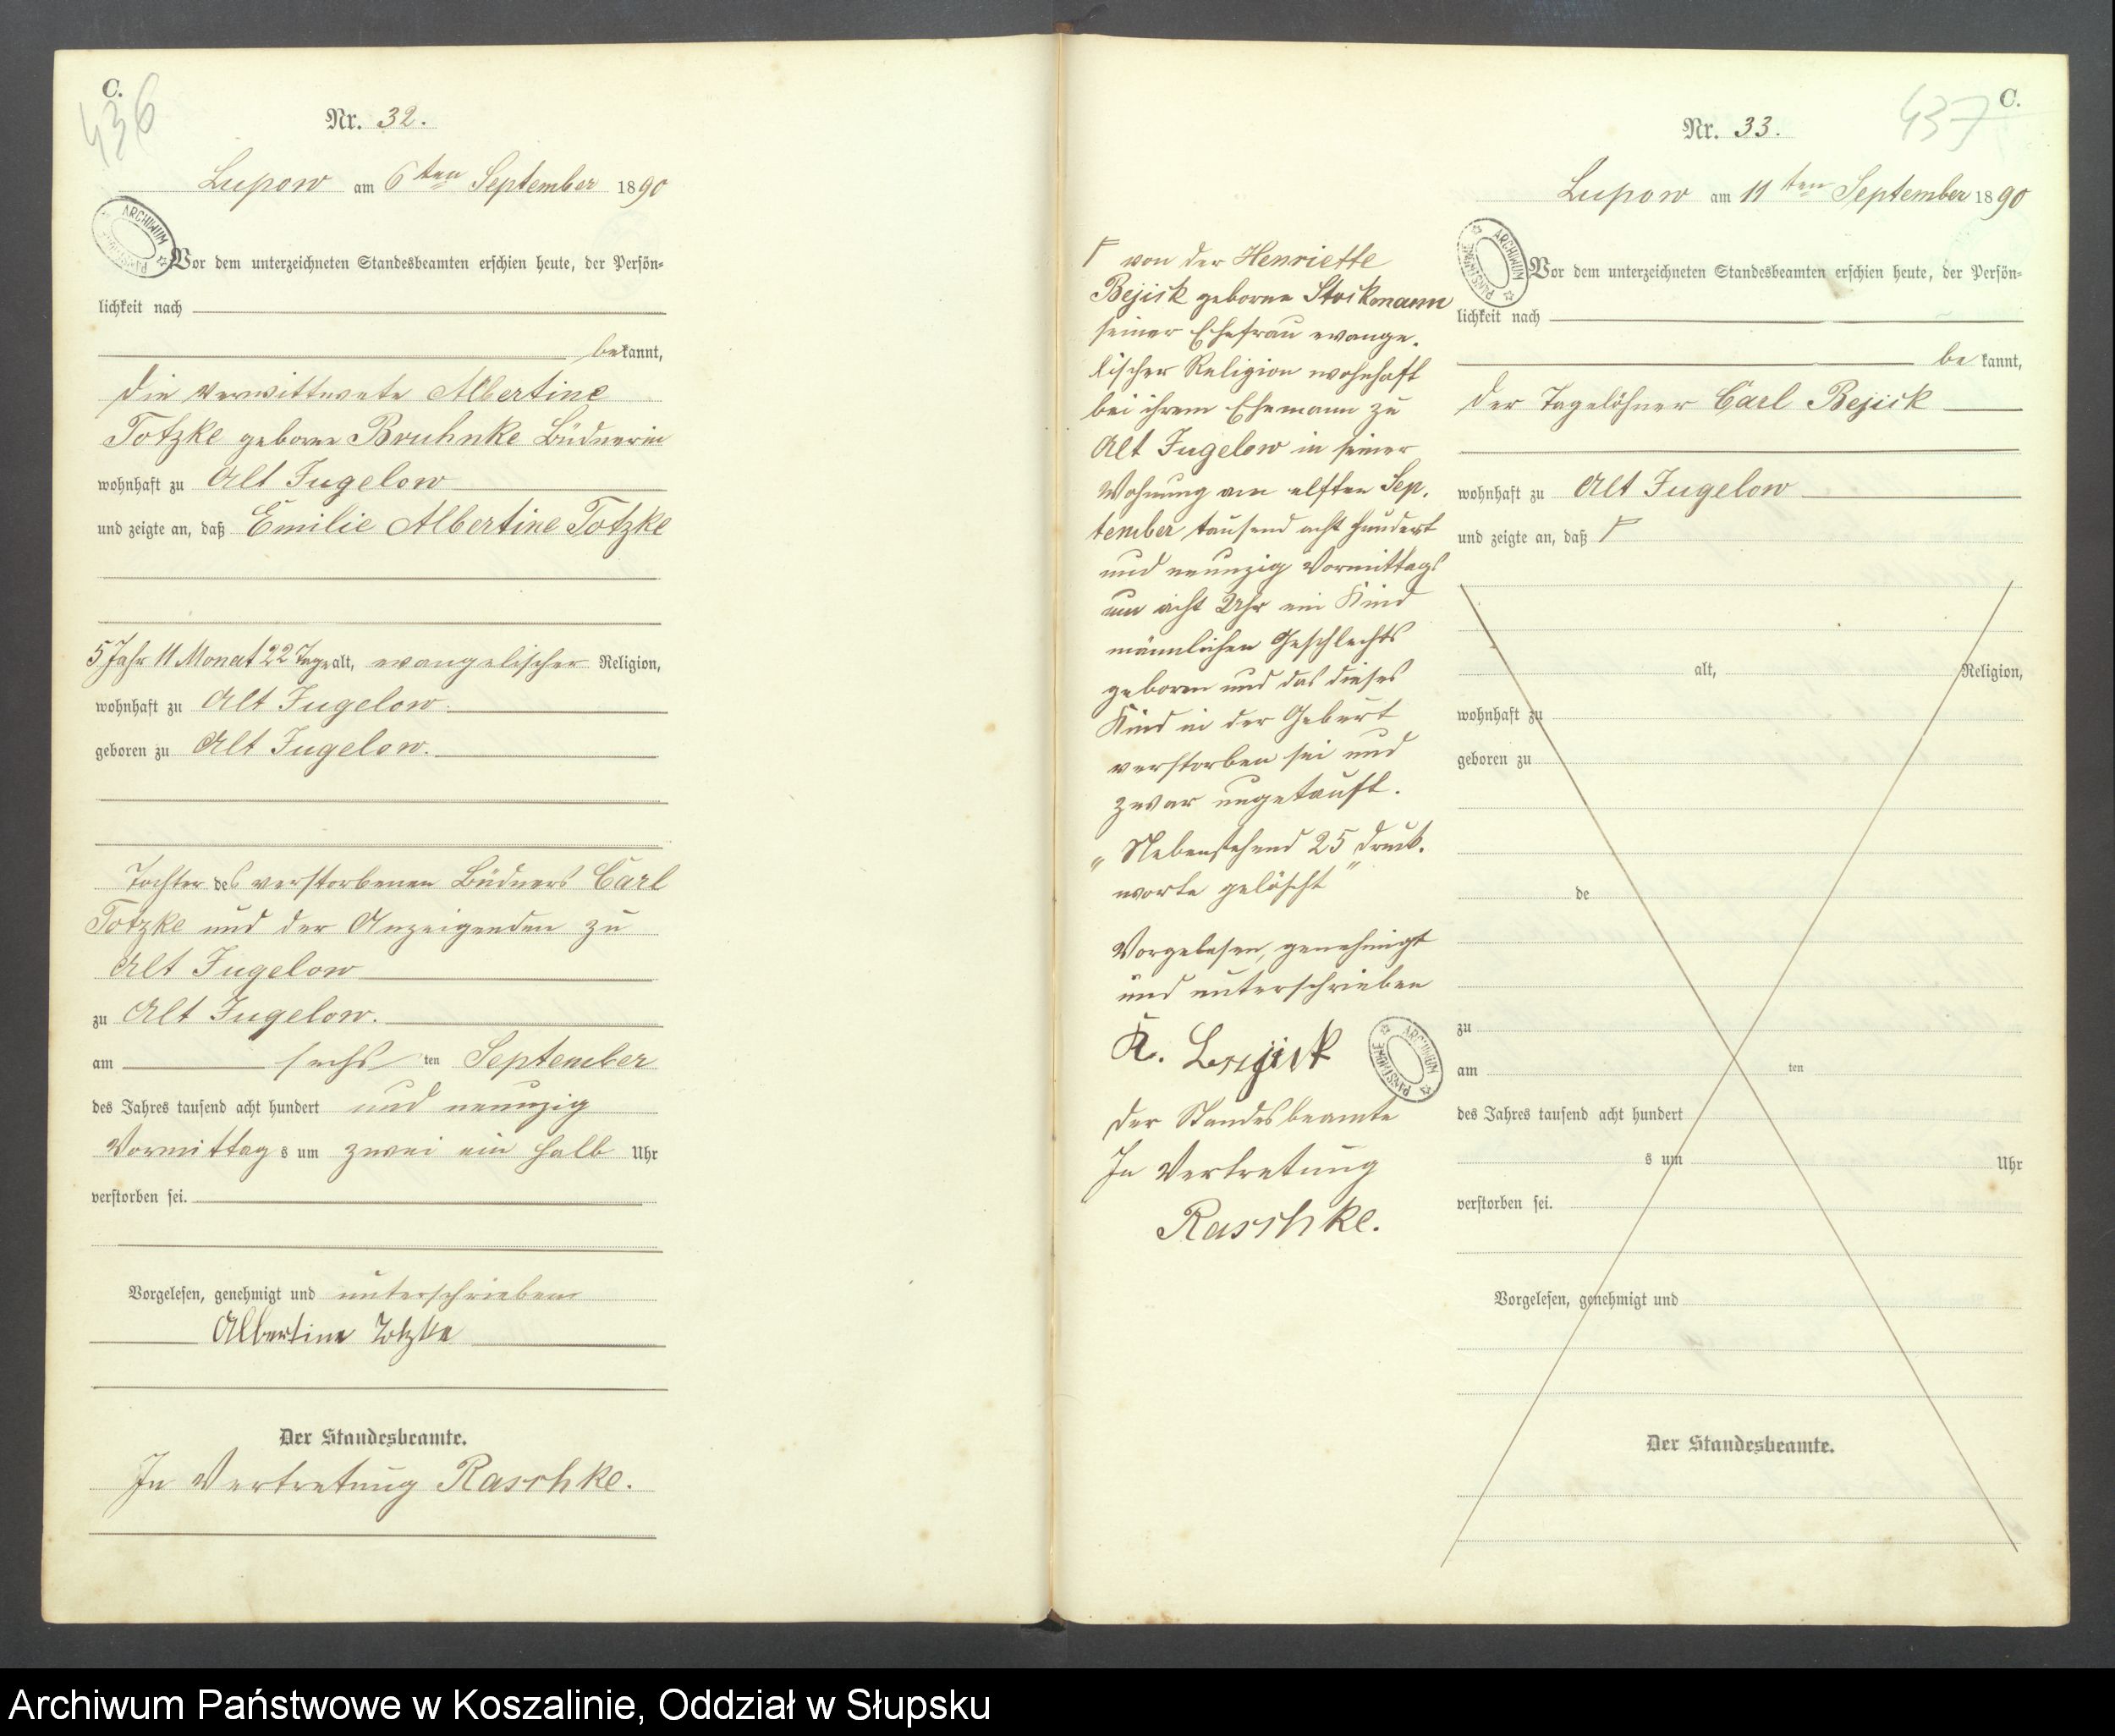 C.
436
Nr. 32.
Lupow am 6ten September 1890
ARCHIWUM PAŃSTWOWE
Vor dem unterzeichneten Standesbeamten erschien heute, der Persön-
lichkeit nach
bekannt,
die verwittwete Albertine
Totzke geborne Bruhnke Büdnerin
wohnhaft zu Alt Jugelow
und zeigte an, daß Emilie Albertine Totzke
5 Jahr 11 Monat 22 Tage alt, evangelischer Religion,
wohnhaft zu Alt Jugelow.
geboren zu Alt Jugelow.
Tochter des verstorbenen Büdners Carl
Totzke und der Anzeigenden zu
Alt Jugelow
zu Alt Jugelow.
am sechsten September
des Jahres tausend acht hundert und neunzig
Vormittags um zwei ein halb Uhr
verstorben sei.
Vorgelesen, genehmigt und unterschrieben
Albertine Totzke
Der Standesbeamte.
In Vertretung Raschke.
C.
437
Nr. 33.
Lupow am 11ten September 1890
ARCHIWUM PAŃSTWOWE
Vor dem unterzeichneten Standesbeamten erschien heute, der Persön-
lichkeit nach
bekannt,
der Tagelöhner Carl Bejick
wohnhaft zu Alt Jugelow
und zeigte an, daß Γ
alt, Religion,
wohnhaft zu
geboren zu
de
zu
am ten
des Jahres tausend acht hundert
s um Uhr
verstorben sei.
Vorgelesen, genehmigt und
Der Standesbeamte.
Γ von der Henriette
Bejick geborne Stockmann
seiner Ehefrau evange-
lischer Religion wohnhaft
bei ihrem Ehemann zu
Alt Jugelow in seiner
Wohnung am elften Sep-
tember tausend acht hundert
und neunzig Vormittags
um acht Uhr ein Kind
männlichen Geschlechts
geboren und das dieses
Kind in der Geburt
verstorben sei und
zwar ungetauft.
„Nebenstehend 25 Druck-
worte gelöscht"
Vorgelesen, genehmigt
und unterschrieben
K. Bejick
ARCHIWUM PAŃSTWOWE
Der Standesbeamte
In Vertretung
Raschke.
Archiwum Państwowe w Koszalinie, Oddział w Słupsku